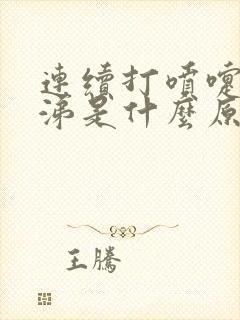 連續打噴嚏
涕是什麼原
王騰